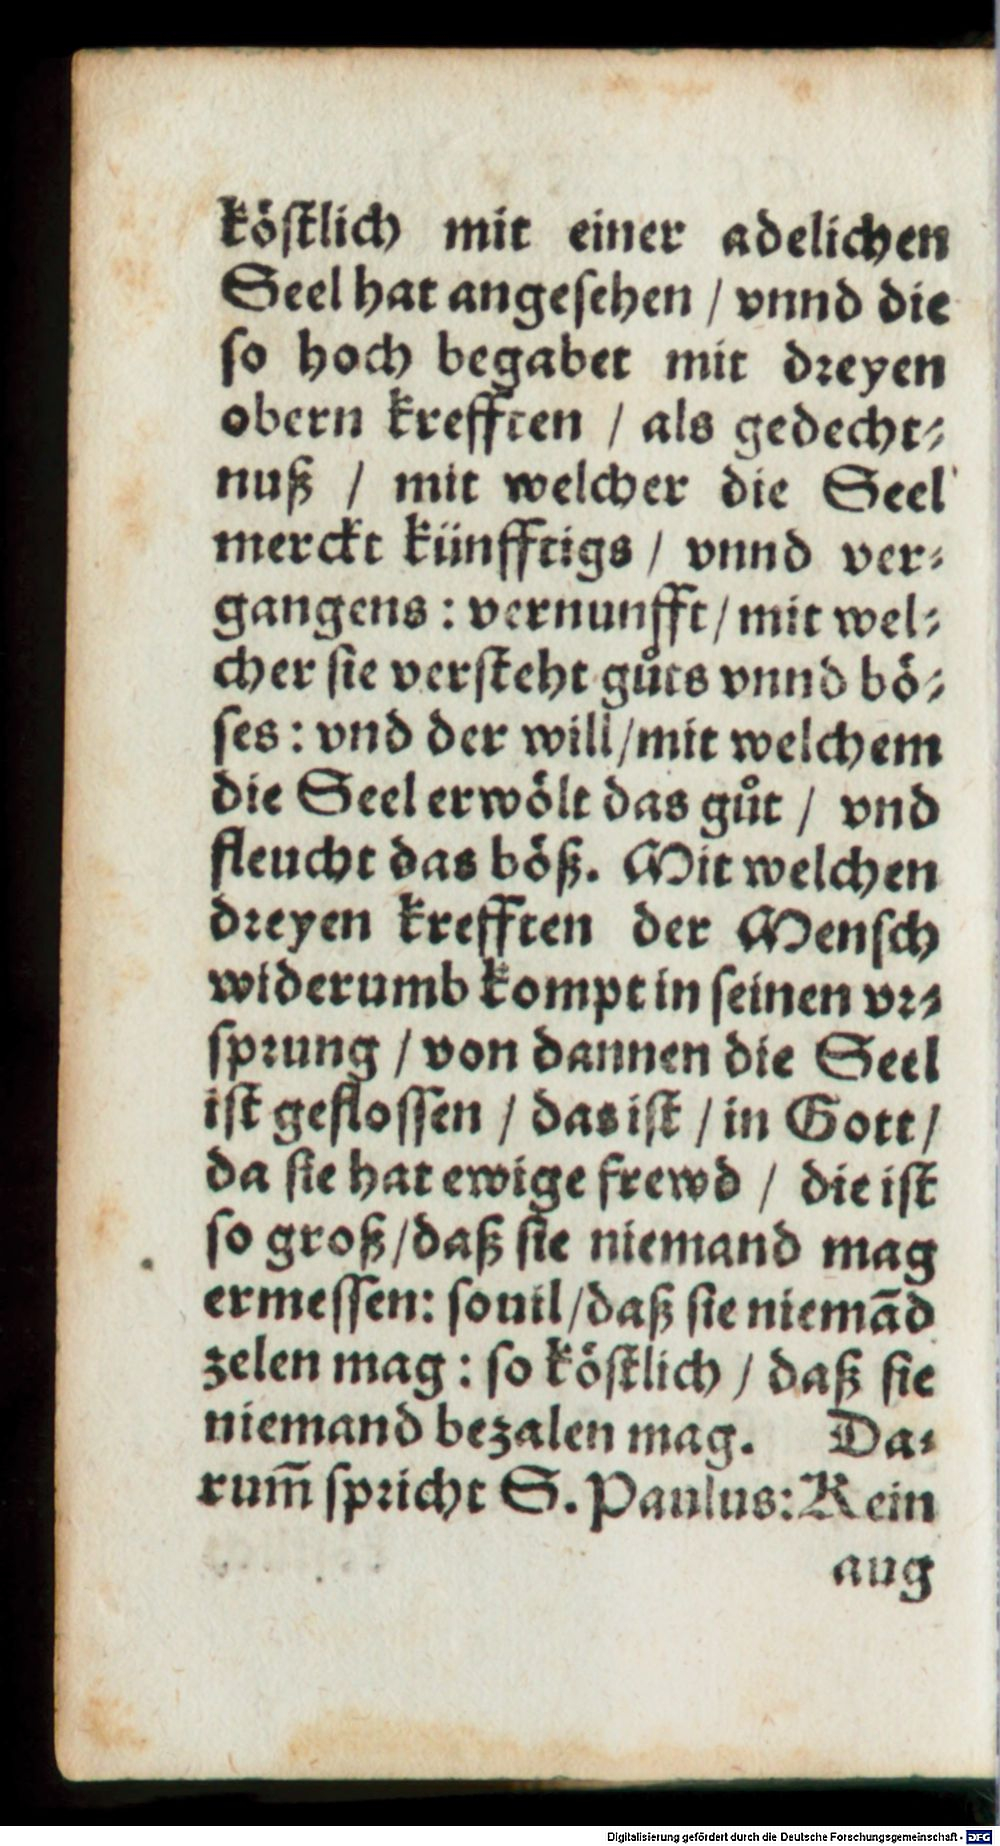 köſtlich mit einer adelichen
Seel hat angeſehen / vnnd die
ſo hoch begabet mit dꝛeyen
obern krefften / als gedecht⸗
nuß / mit welcher die Seel
merckt künfftigs / vnnd ver⸗
gangens : vernunfft / mit wel⸗
cher ſie verſteht gůts vnnd bö⸗
ſes : vnd der will / mit welchem
die Seel erwölt das gůt / vnd
fleucht das böß. Mit welchen
dꝛeyen krefften der Menſch
widerumb kompt in ſeinen vꝛ⸗
ſpꝛung / von dannen die Seel
iſt gefloſſen / das iſt / in Gott /
da ſie hat ewige frewd / die iſt
ſo groß / daß ſie niemand mag
ermeſſen: ſouil / daß ſie niemãd
zelen mag : ſo köſtlich / daß ſie
niemand bezalen mag. Da⸗
rum̃ ſpꝛicht S. Paulus: Kein
aug
Digitalisierung gefördert durch die Deutsche Forschungsgemeinschaft - DFG